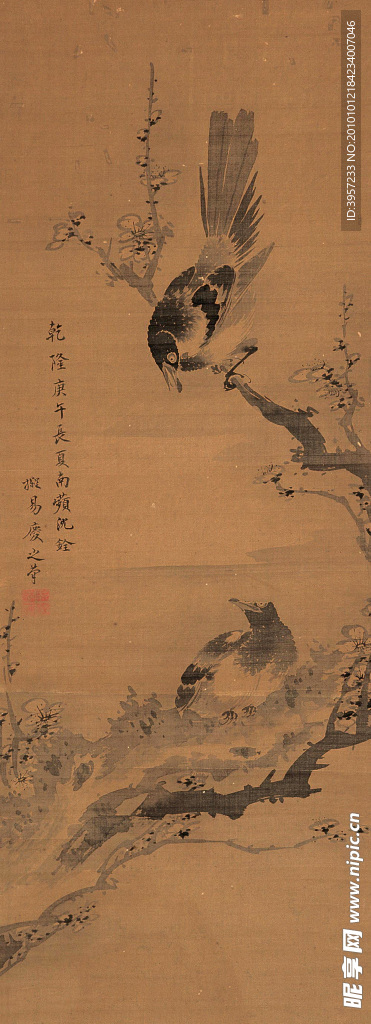 乾隆庚午長夏南蘋沈銓
擬易慶之筆
ID:3957233 NO:20101012184234007046
昵享网 www.nipic.cn